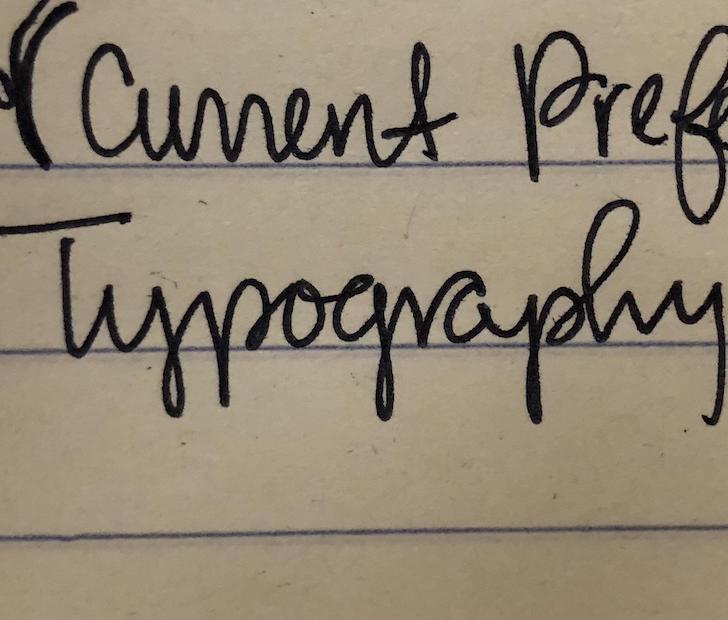 Current Pref
Typography